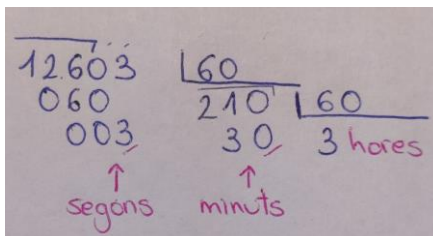 12.603 60
060 210 60
003 30 3 hores
segons minuts